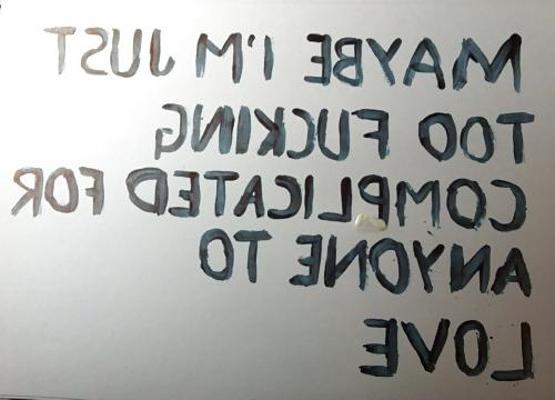 MAYBE I'M JUST
TOO FUCKING
COMPLICATED FOR
ANYONE TO
LOVE